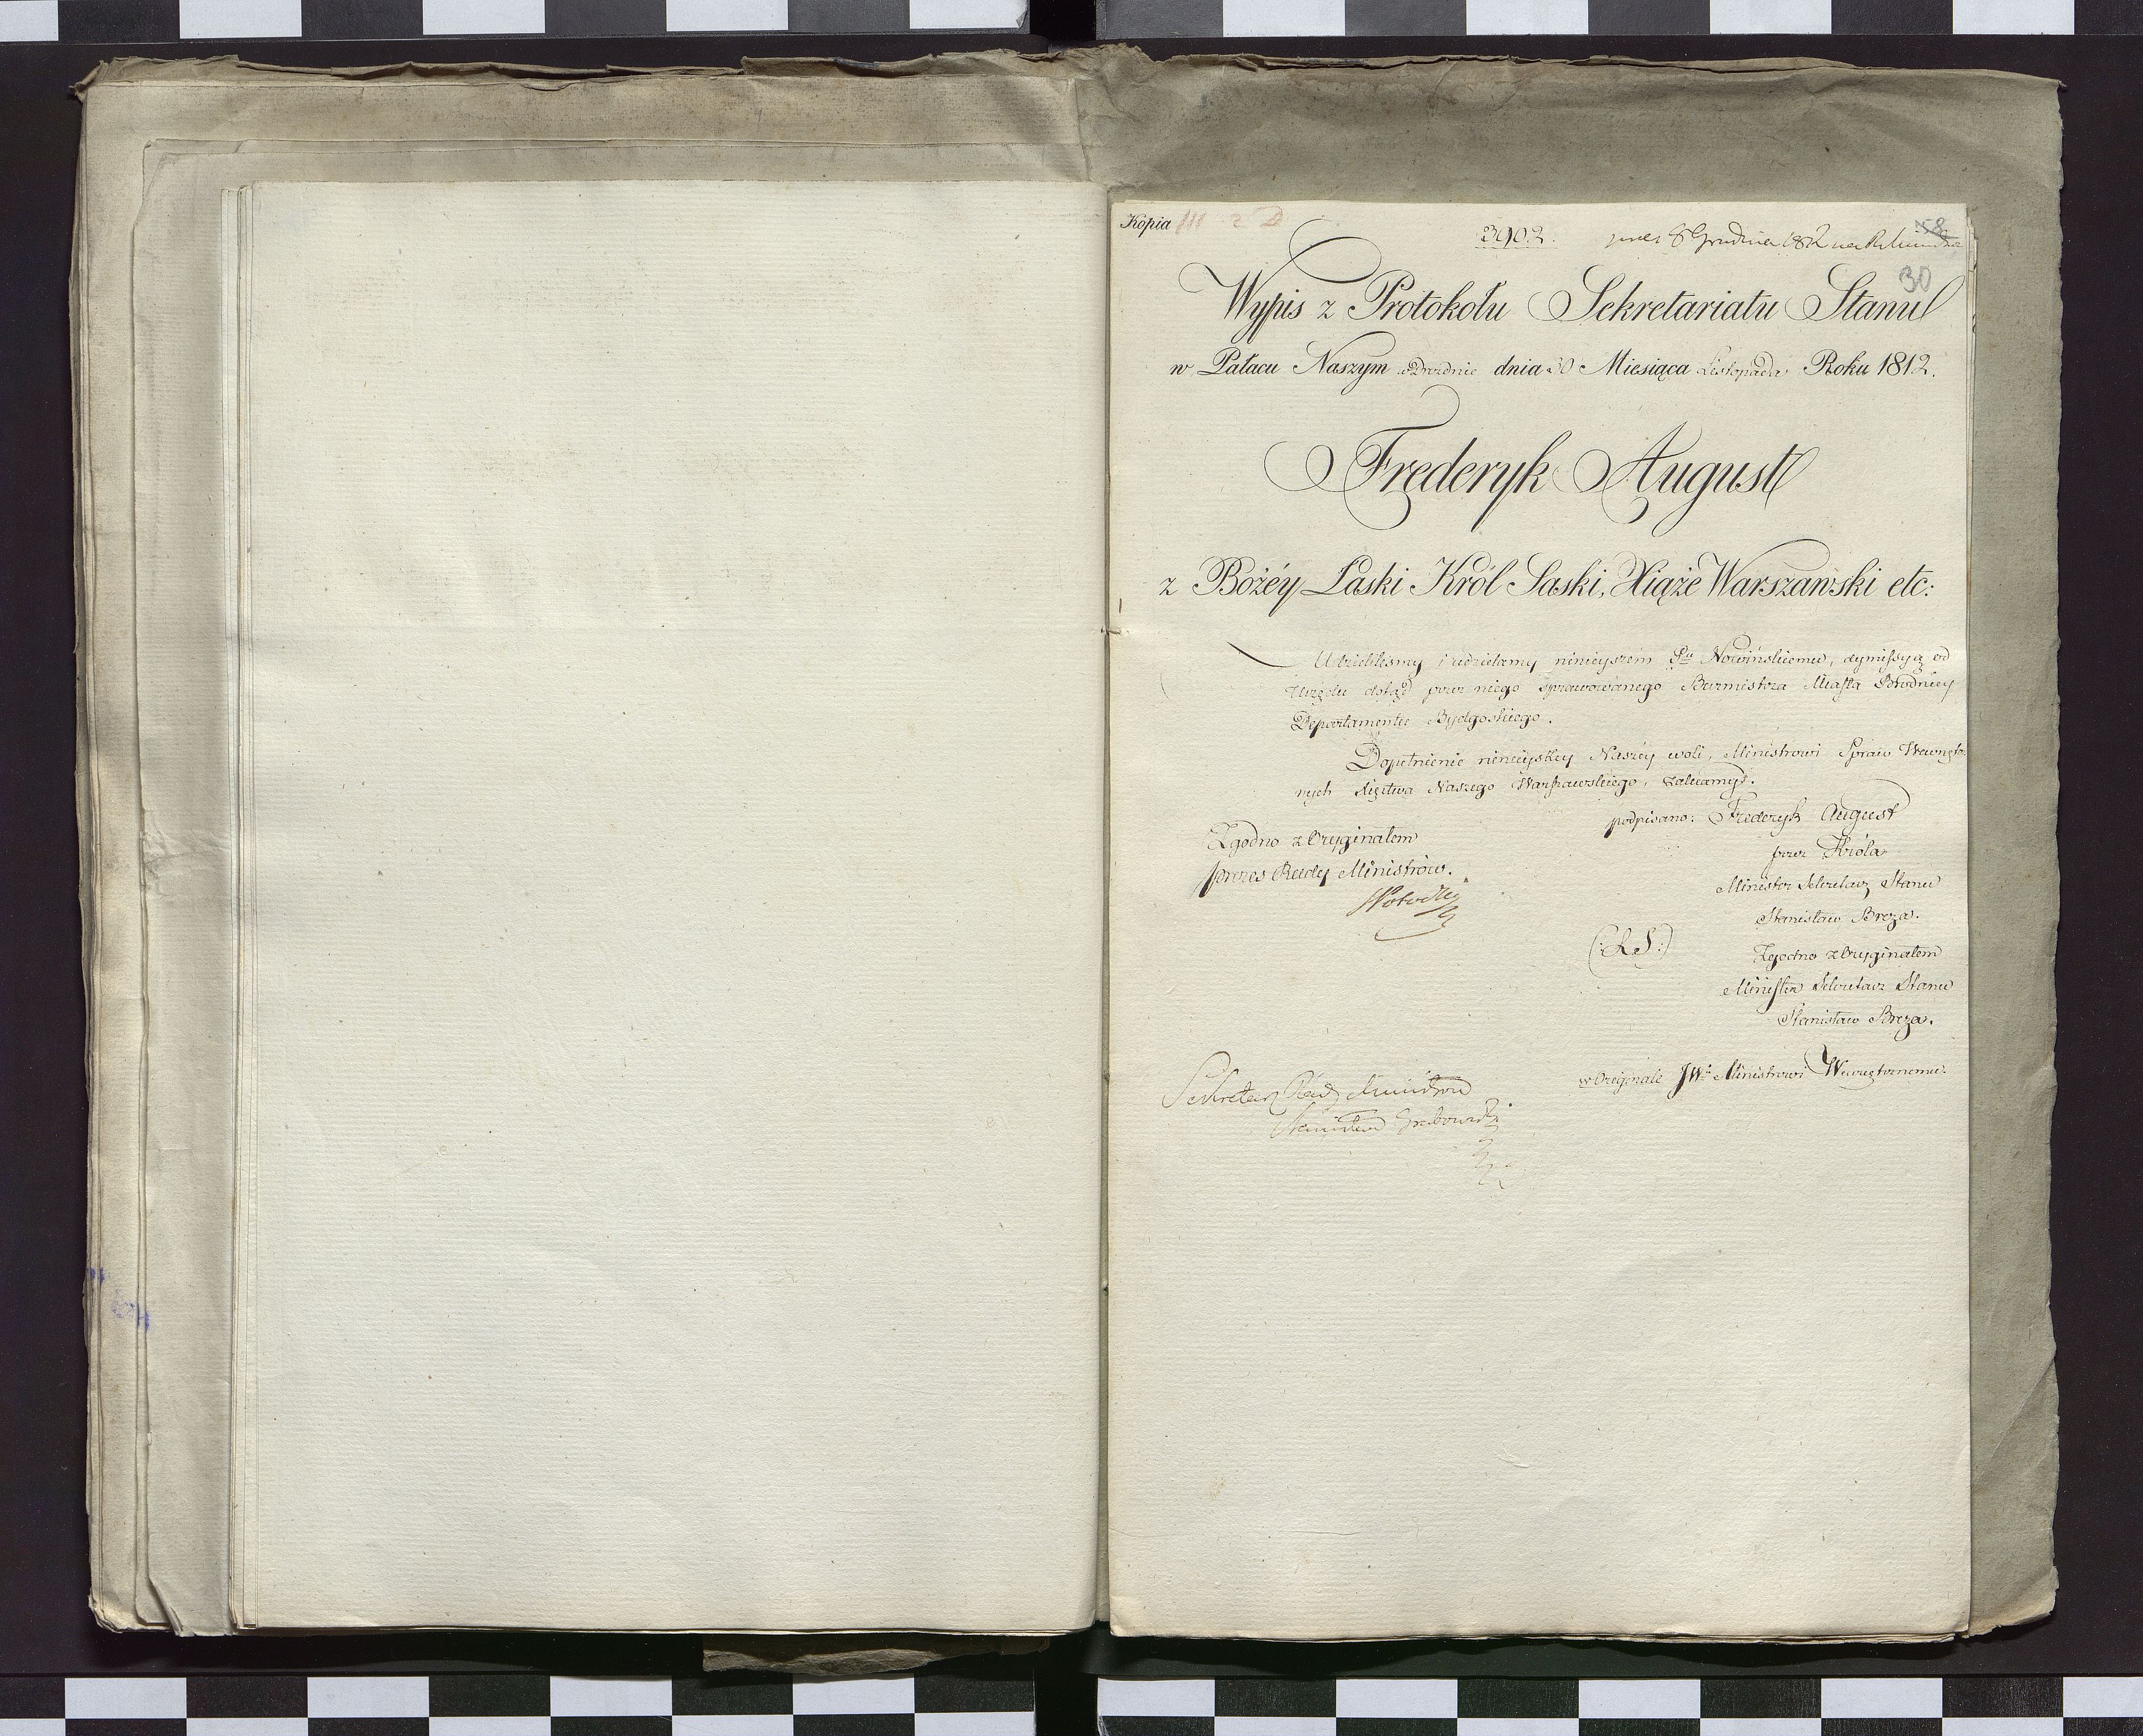 Kopia III 2 D
3902.
8 Grudnia 1812 na
58
30
Wypis z Protokołu Sekretariatu Stanu
w Pałacu Naszym w Dreznie dnia 30 Miesiąca Listopada Roku 1812.
Frederyk August
z Bożéy Łaski Król Saski, Xiąże Warszawski etc:
Udzieliliśmy i udzielamy ninieyszém Pu Nowińskiemu, dymissyą od
Urzędu dotąd przez niego sprawowanego Burmistrza Miasta Brodnicy
Departamentu Bydgoskiego.
Dopełnienie ninieyszey Naszéy woli, Ministrowi Spraw Wewnętrz-
nych Xięstwa Naszego Warszawskiego, zalecamy.
podpisano: Frederyk August
przez Króla
Minister Sekretarz Stanu
Stanisław Breza.
(:L.S:)
Zgodno z Oryginałem
Minister Sekretarz Stanu
Stanisław Breza.
Zgodno z Oryginałem
Prezes Rady Ministrów.
w Originale JWu Ministrowi Wewnętrznemu.
Sekretarz Rady Ministrów
Stanisław Grabowski